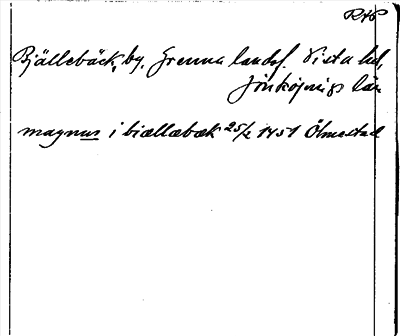 RAP
Bjällebäck, by, Grenna landsf. Vista hd,
Jönköpings län
magnus i biællæbæk 25/2 1451 Ölmestad